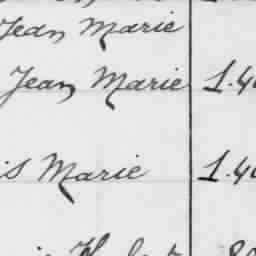 Jean Marie
Jean Marie 1.40
is Marie 1.40